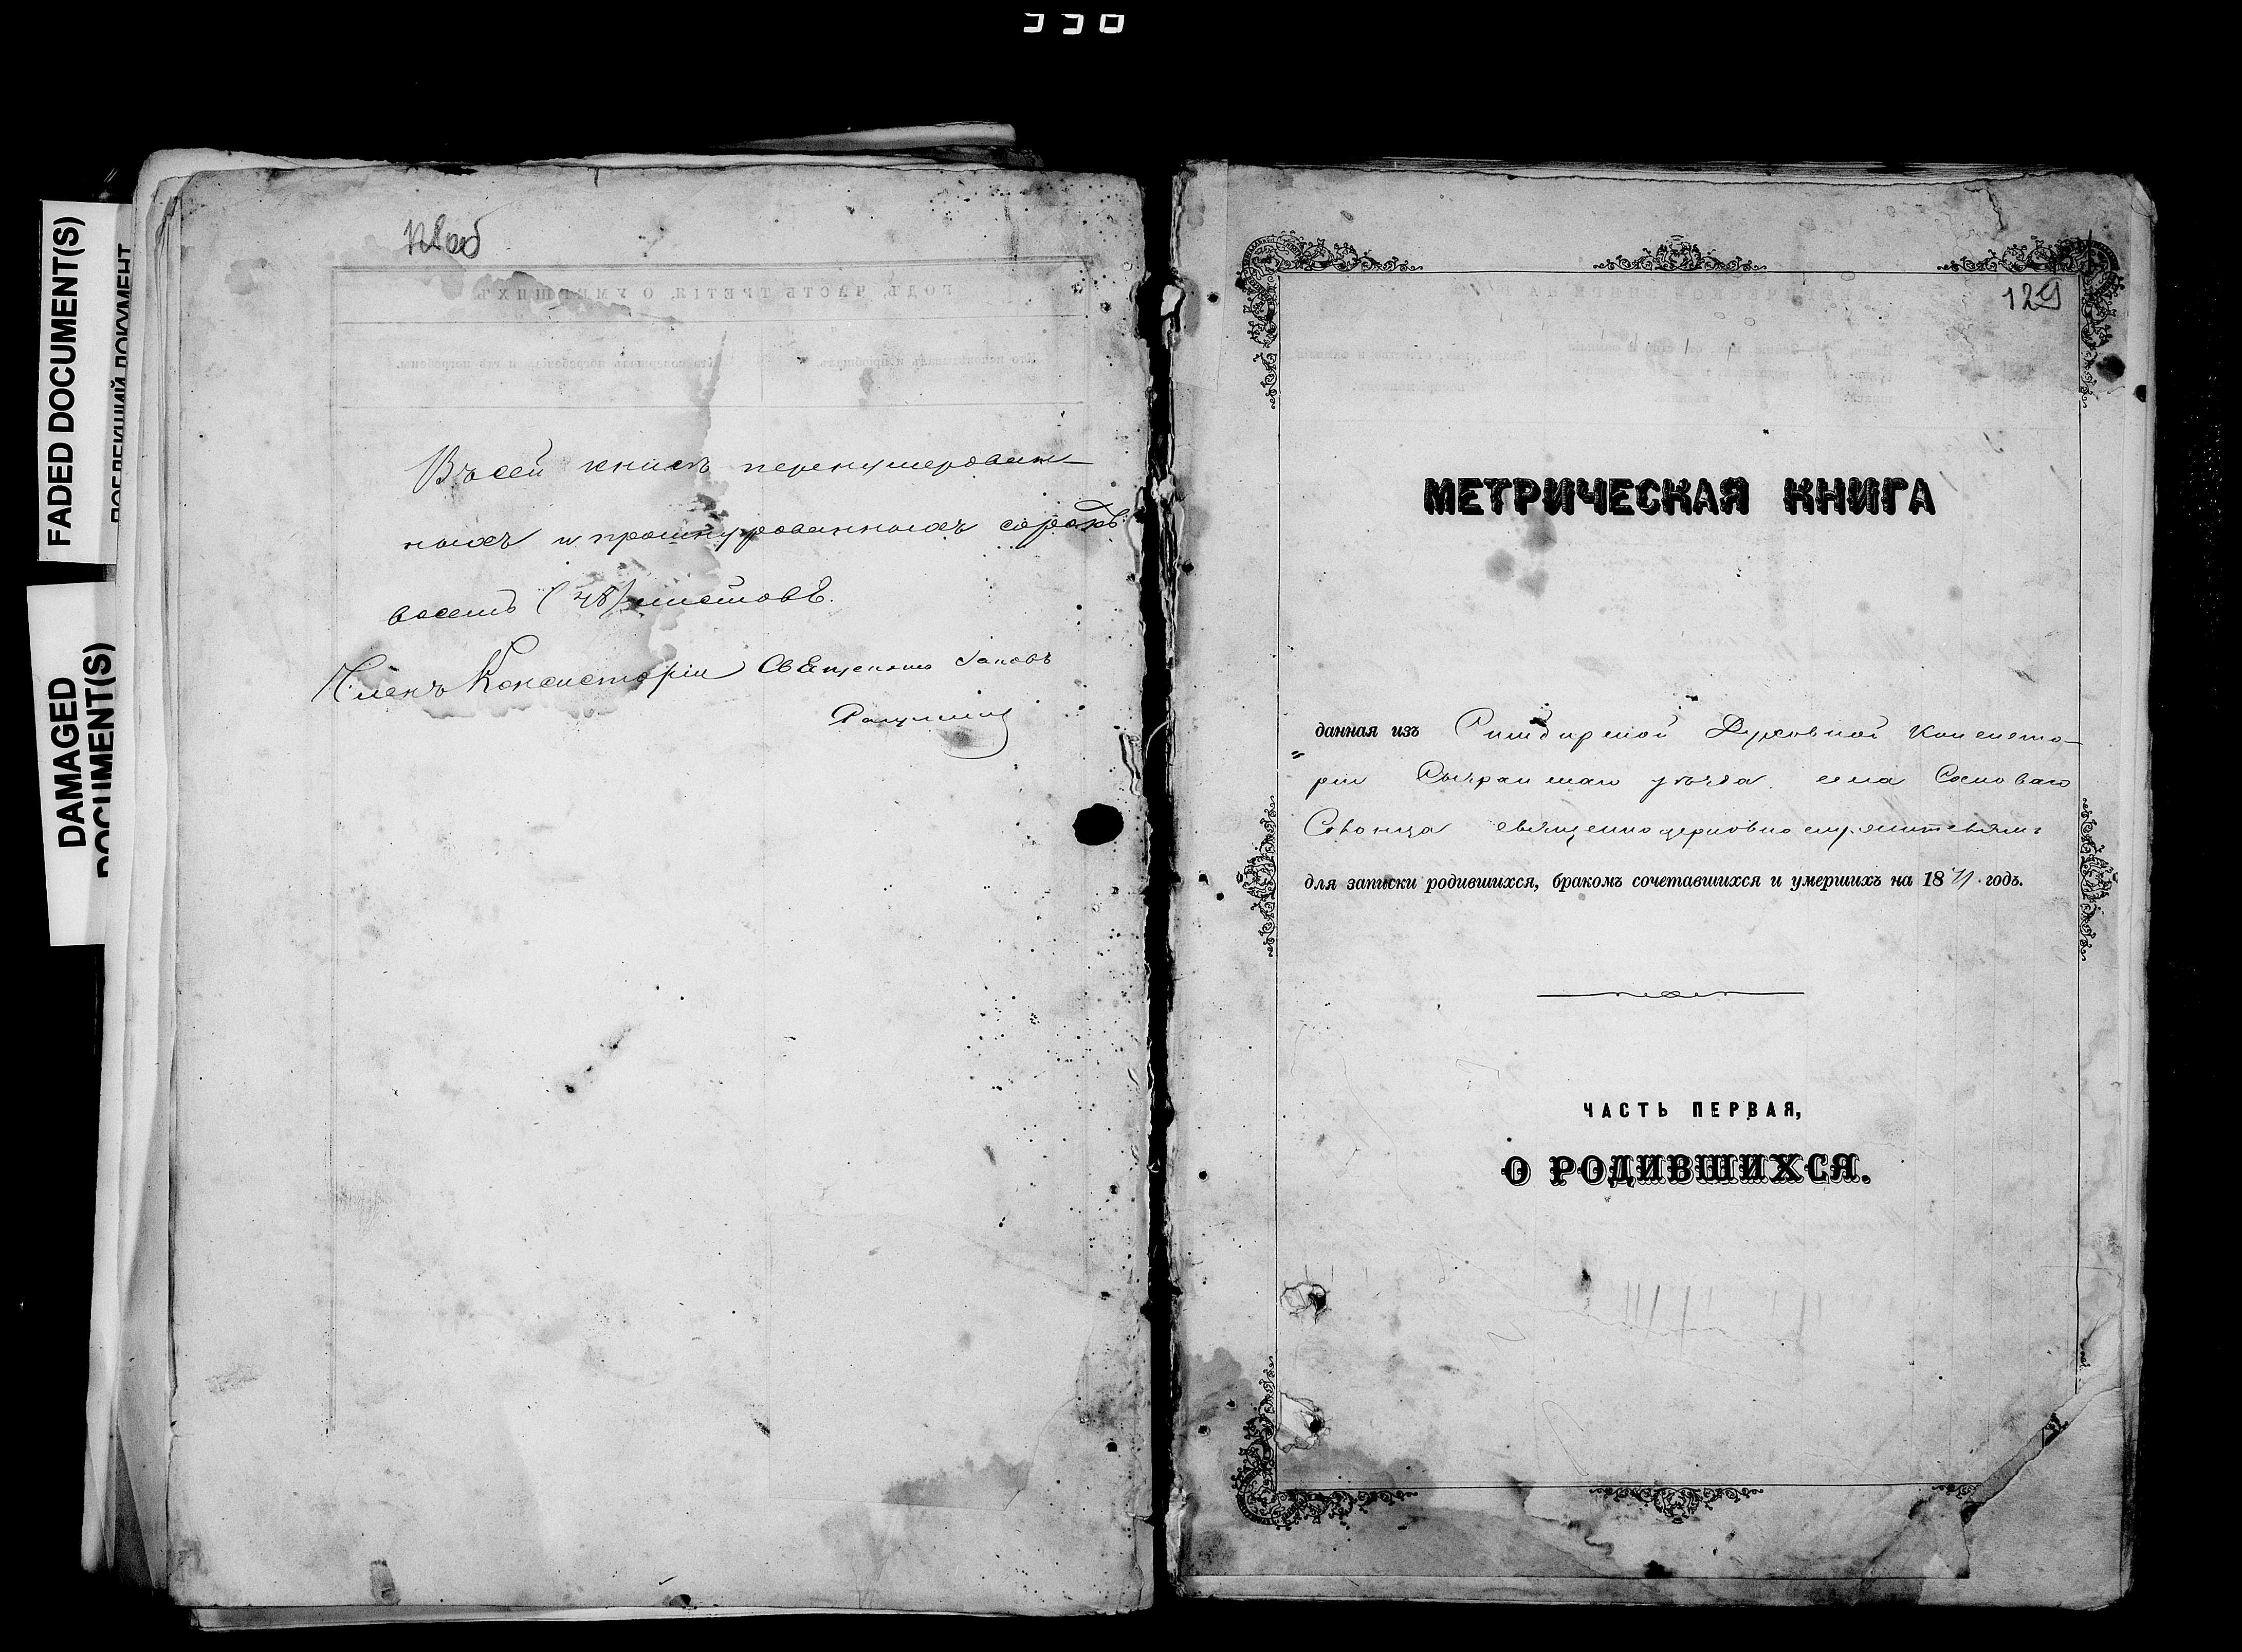 FADED DOCUMENT(S)
DAMAGED
DOCUMENT(S)
ГОДЪ, ЧАСТЬ ТРЕТІЯ, О УМЕРШИХЪ.
Въ сей книгѣ перенумерован-
ныхъ и прошнурованныхъ сорокъ
восемь (48) листовъ.
Членъ Консисторіи Священникъ Іаковъ
129
МЕТРИЧЕСКАЯ КНИГА
данная изъ Симбирской Духовной Консисто-
ріи Сызранскаго уѣзда села Сосноваго
Солонца священноцерковнослужителямъ
для записки родившихся, бракомъ сочетавшихся и умершихъ на 18 годъ.
ЧАСТЬ ПЕРВАЯ,
О РОДИВШИХСЯ.